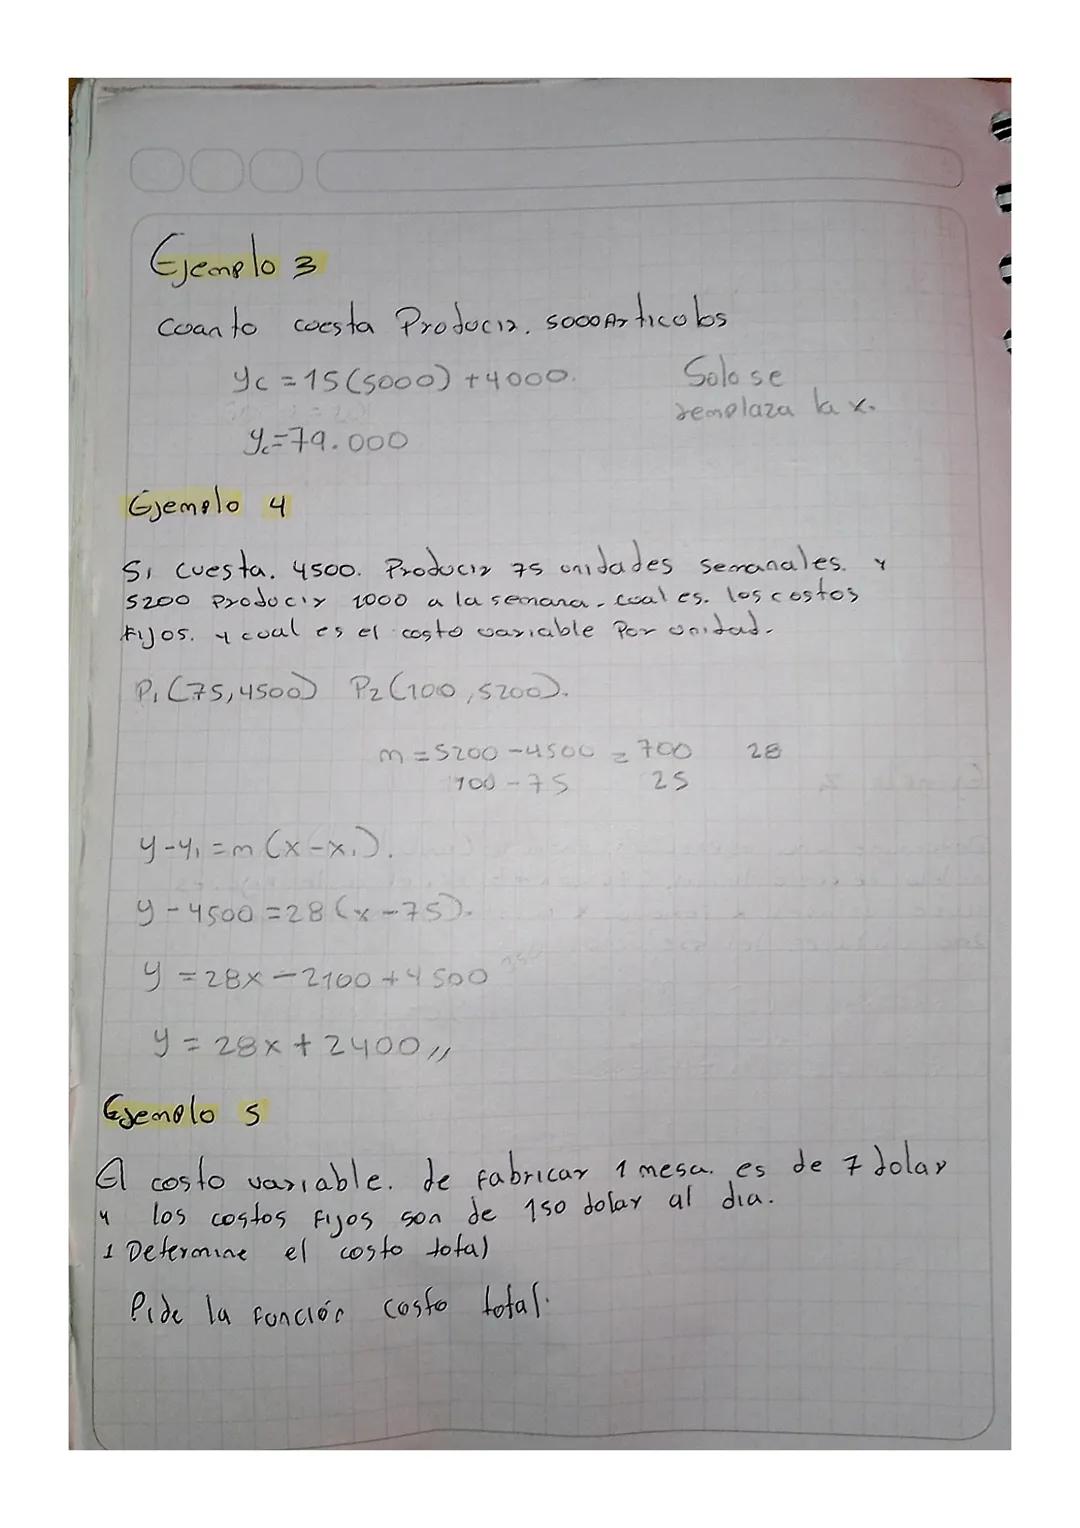 Ejemplo 3
Cuanto cuesta Producir. 5000 Articulos
yc = 15(5000) + 4000.
Solo se
remplaza la x.
yc = 79.000
Ejemplo 4
Si cuesta. 4500. Producir 75 unidades semanales. y
5200 Producir 1000 a la semana. cual es. los costos
Fijos. y cual es el costo variable Por unidad.
P1 (75, 4500) P2 (100, 5200).
m = 5200 - 4500 = 700 28
100 - 75 25
y - y1 = m (x - x1).
y - 4500 = 28 (x - 75).
y = 28x - 2100 + 4500
y = 28x + 2400 //
Ejemplo 5
El costo variable. de fabricar 1 mesa. es de 7 dolar
y los costos Fijos son de 150 dolar al dia.
1 Determine el costo total
Pide la función costo total.